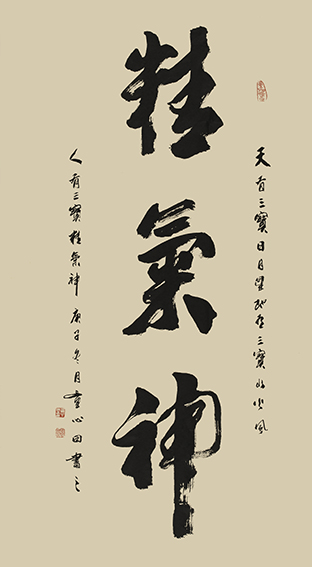 天有三寶日月星地有三寶水火風
精氣神
人有三寶精氣神 庚子冬月童心田書之